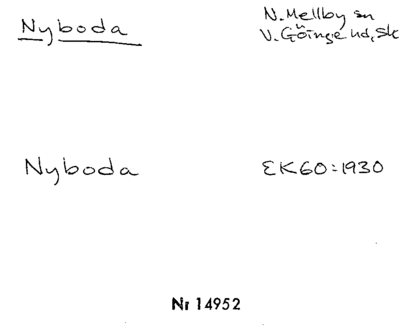 Nyboda
N. Mellby sn
V. Göinge hd, Sk
Nyboda
EK60:1930
Nr 14952